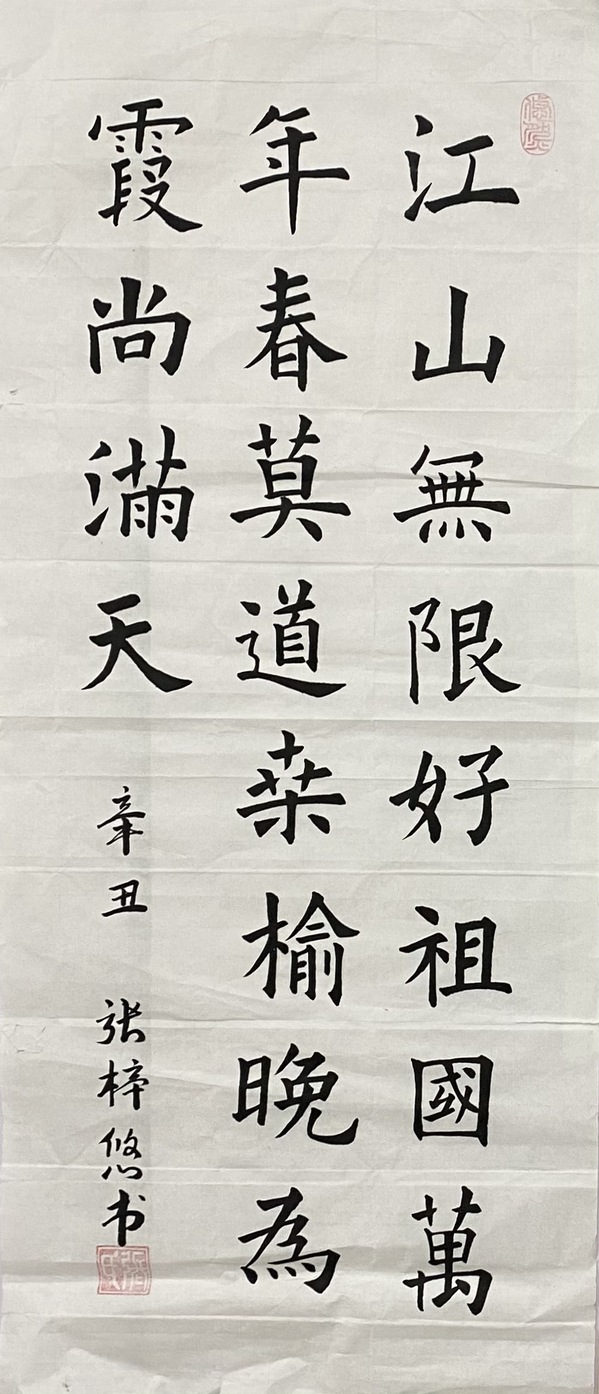 江山無限好祖國萬
年春莫道桒榆晚為
霞尚滿天
辛丑 张梓悠书